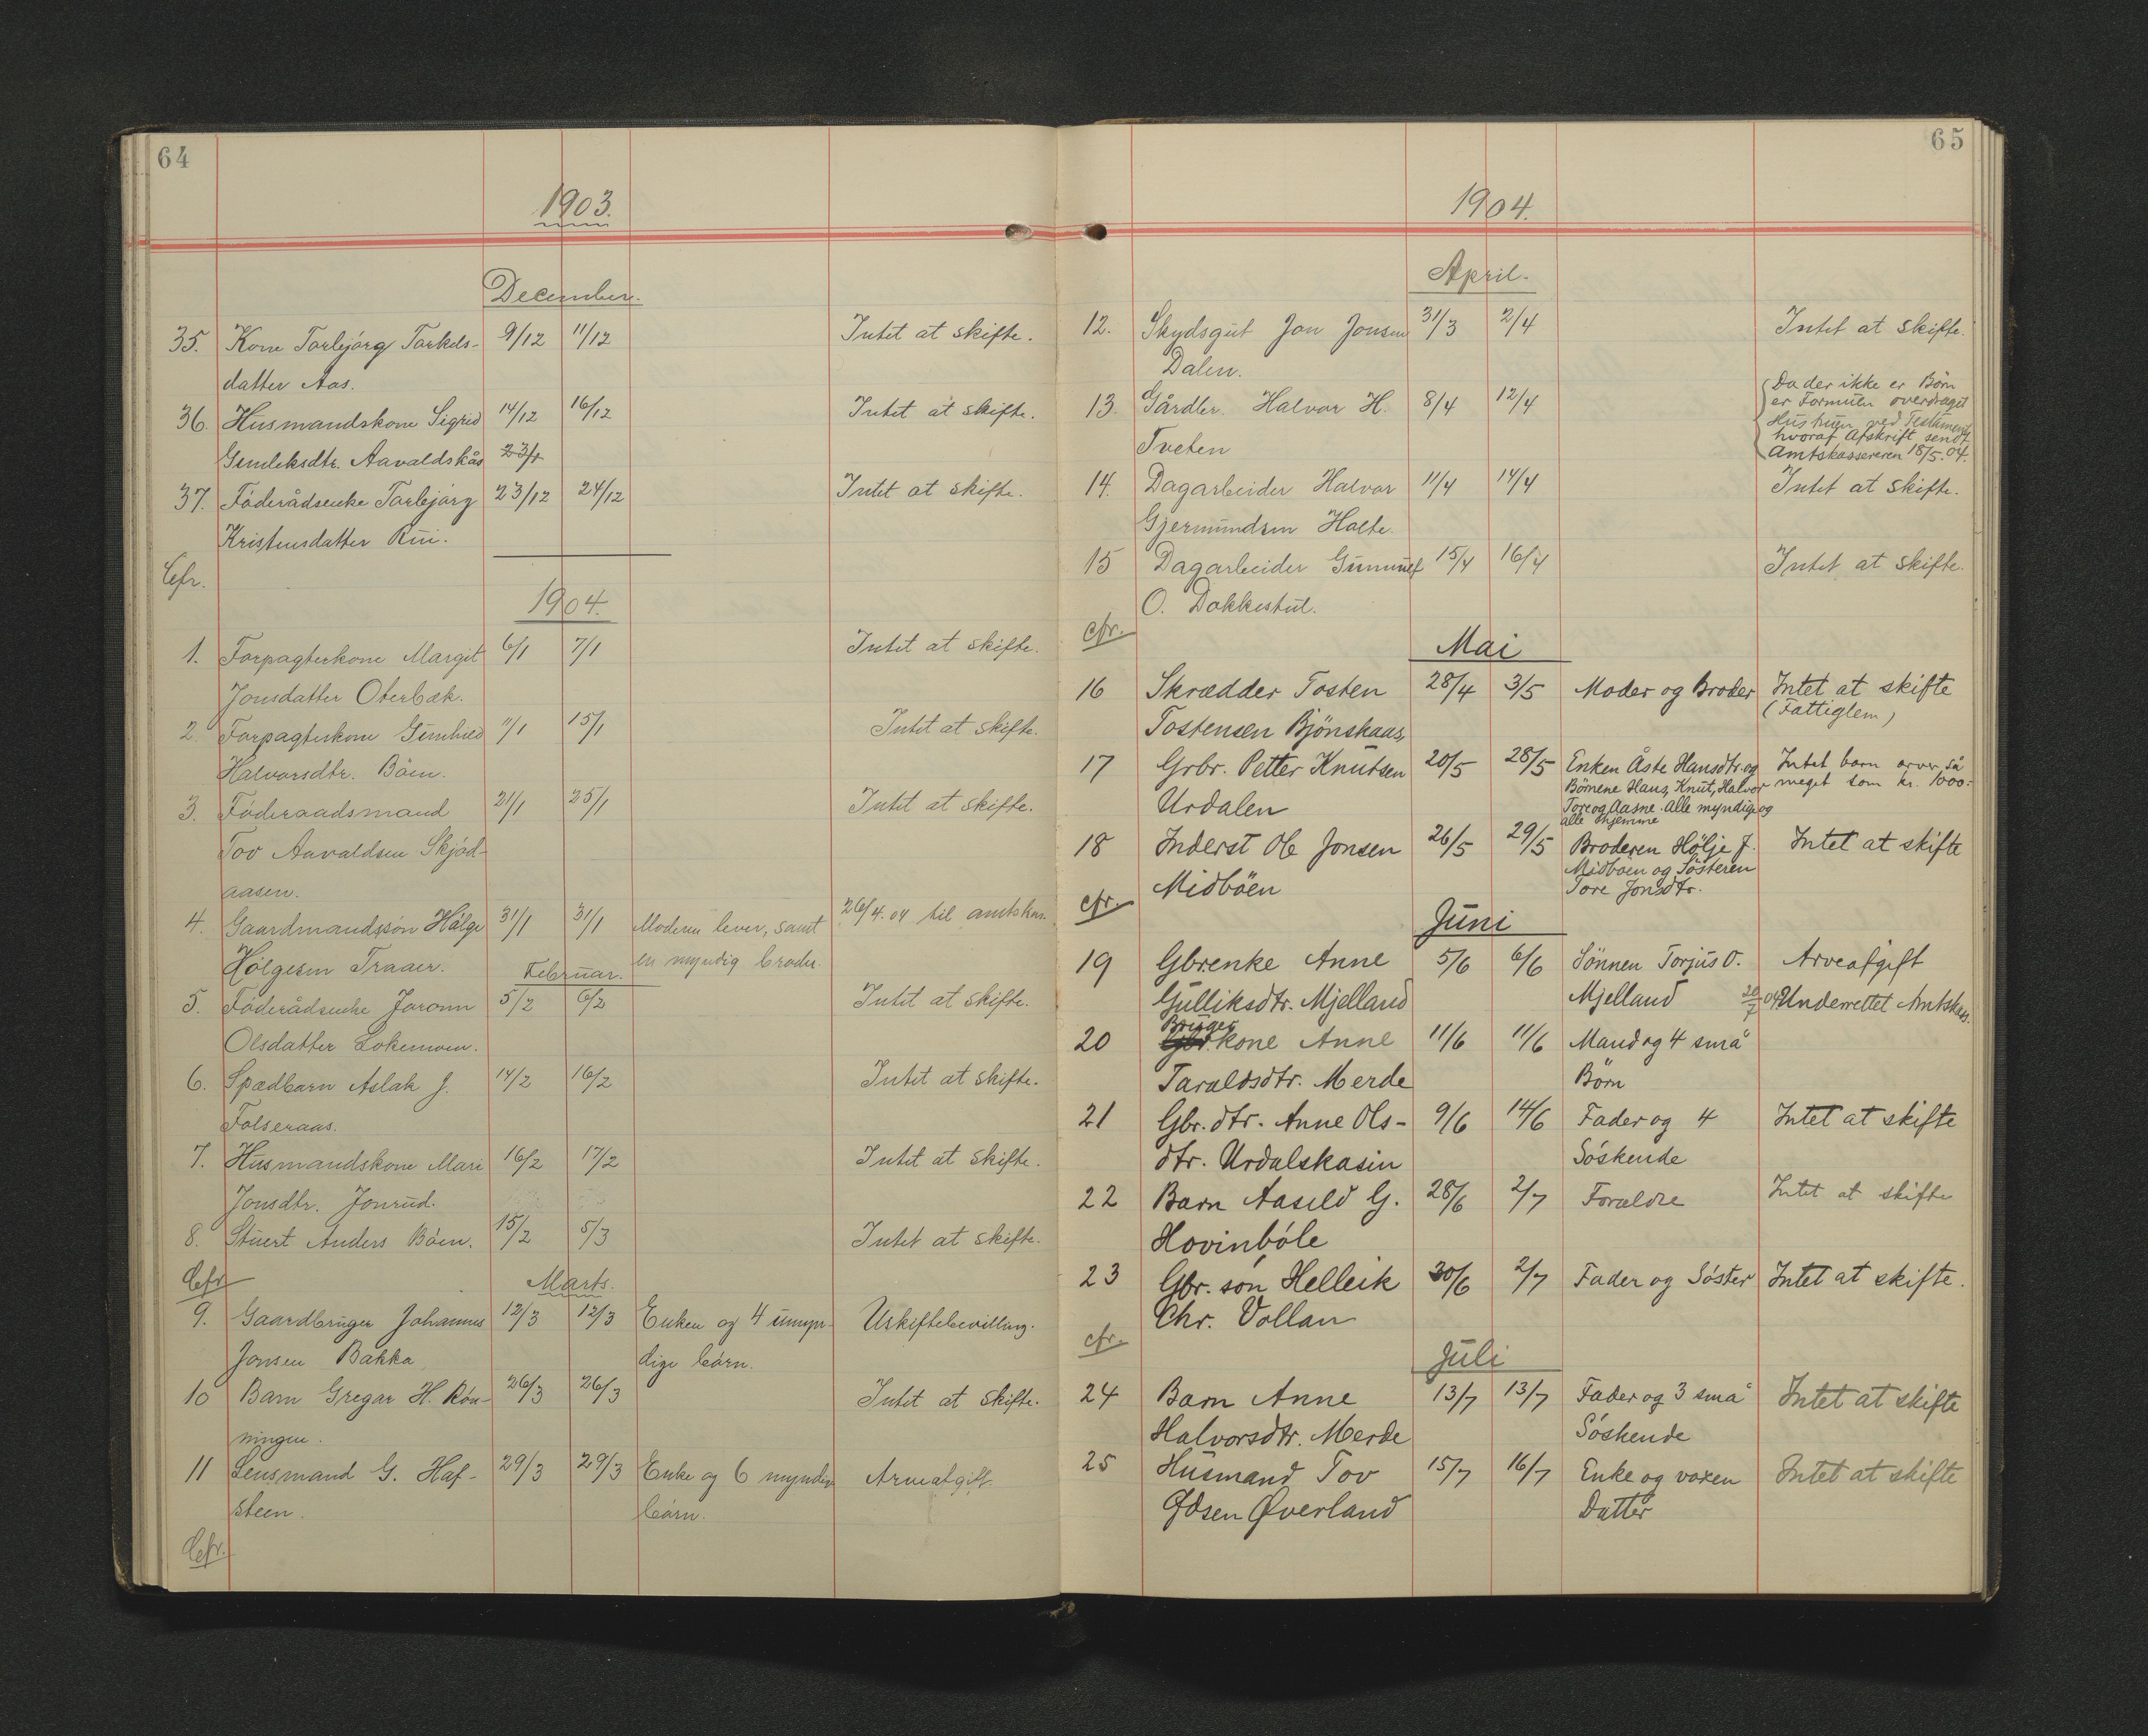 64
1903.
December.
35. Kone Torbjørg Torkels- 9/12 11/12 Intet at skifte.
datter Aas.
36. Husmandskone Sigrid 14/12 16/12 Intet at skifte.
Gunleksdtr. Aavaldskås 23/1
37. Föderådsenke Torbjørg 23/12 24/12 Intet at skifte.
Kristensdatter Rui.
Cfr.
1904.
1. Forpagterkone Margit 6/1 7/1 Intet at skifte.
Jonsdatter Oterbæk.
2. Forpagterkone Gunhild 7/1 15/1 Intet at skifte.
Halvorsdtr. Böen.
3. Föderaadsmand 21/1 25/1 Intet at skifte.
Tov Aavaldsen Skjød-
aasen.
4. Gaardmandssön Hölge 31/1 31/1 Moderen lever, samt 26/4.04 til amtskas.
Hölgesen Traaer. en myndig broder.
Februar.
5. Föderådsenke Joronn 5/2 6/2 Intet at skifte.
Olsdatter Lokenmoen.
6. Spædbarn Aslak J. 14/2 16/2 Intet at skifte.
Folseraas.
7. Husmandskone Mari 16/2 17/2 Intet at skifte.
Jonsdtr. Jonrud.
8. Stuert Anders Böen. 15/2 5/3 Intet at skifte.
Cfr
Marts.
9. Gaardbruger Johannes 12/3 12/3 Enken og 4 umyn- Uskiftebevilling.
Jonsen Bakka dige börn.
10 Barn Gregar H. Rön- 26/3 26/3 Intet at skifte.
ningen.
11 Lensmand G. Haf- 29/3 29/3 Enke og 6 myndige Arveafgift.
steen. börn.
Cfr.
65
1904.
April.
12. Skydsgut Jon Jonsen 31/3 2/4 Intet at skifte.
Dalen.
13. Gårdbr. Halvor H. 8/4 12/4 Da der ikke er Börn
er Formuen overdraget
Tveten Hustruen ved Testament
hvoraf Afskrift sendt
Amtskassereren 18/5.04.
14. Dagarbeider Halvor 11/4 14/4 Intet at skifte.
Gjermundsen Holte.
15 Dagarbeider Gunnulf 15/4 16/4 Intet at skifte.
O. Dokkestul.
cfr.
Mai
16 Skrædder Tosten 28/4 3/5 Moder og Broder Intet at skifte
Tostensen Bjönskaas (Fattiglem)
17 Grbr. Petter Knutsen 20/5 28/5 Enken Åste Hansdtr. og Intet barn arver så
Urdalen Börnene Hans, Knut, Halvor meget som kr. 1000.-
Tore og Aasne. Alle myndige og
alle hjemme
18 Inderst Ole Jonsen 26/5 29/5 Broderen Hölje J. Intet at skifte
Midböen Midböen og Søsteren
Tore Jonsdtr.
cfr.
Juni
19 Gbrenke Anne 5/6 6/6 Sönnen Torjus O. Arveafgift
Gulliksdtr. Mjelland Mjelland 20/7 04 Underrettet Amtskass.
Bruger
20 Gbr.kone Anne 11/6 11/6 Mand og 4 små
Taraldsdtr. Merde Börn
21 Gbr.dtr. Anne Ols- 9/6 14/6 Fader og 4 Intet at skifte
dtr. Urdalskasin Söskende
22 Barn Aasild G. 28/6 2/7 Forældre Intet at skifte
Hovinböle
23 Gbr. sön Helleik 30/6 2/7 Fader og Söster Intet at skifte.
Chr. Vollan
cfr.
Juli
24 Barn Anne 13/7 13/7 Fader og 3 små Intet at skifte
Halvorsdtr. Merde Söskende
25 Husmand Tov 15/7 16/7 Enke og voxen Intet at skifte
Øvsen Øverland Datter